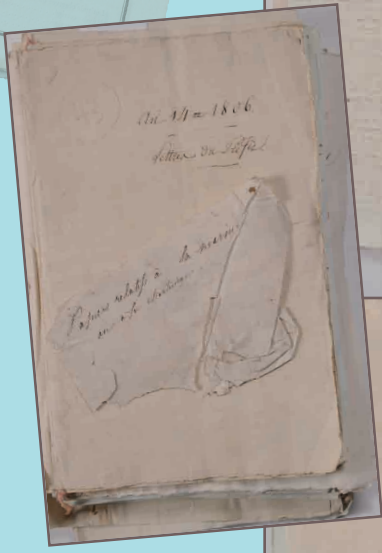 An 14 = 1806
Lettres du Préfet
Papiers relatifs à la marine